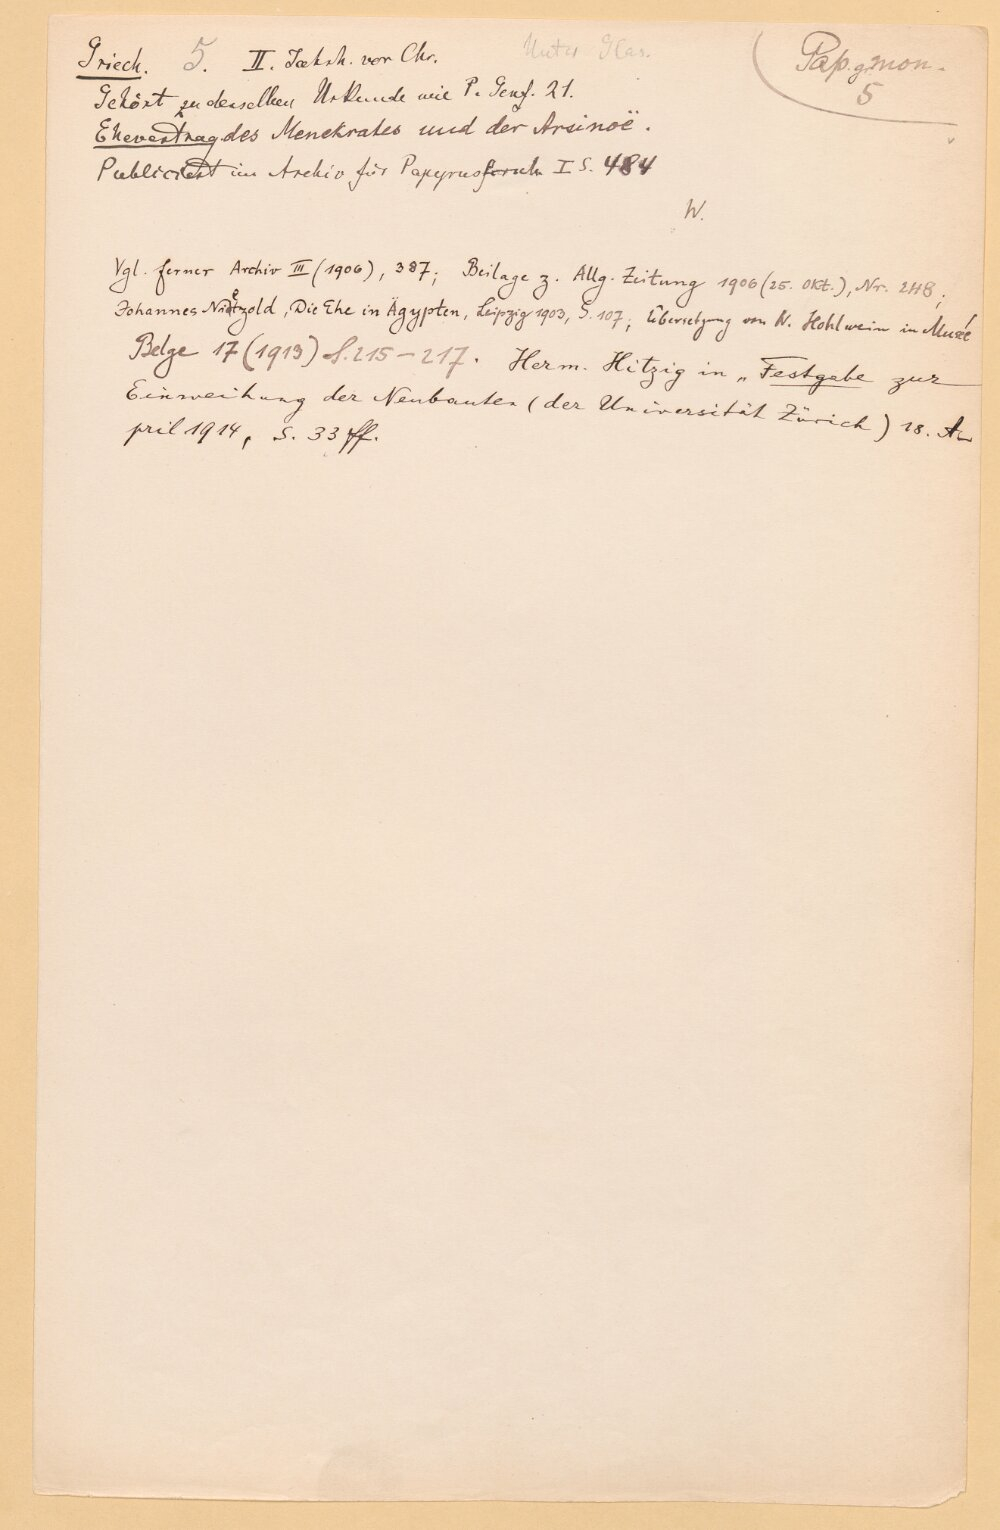 Griech. 5. II. Jahrh. vor Chr. Unter Glas.
Pap. gr. mon.
5
Gehört zu derselben Urkunde wie P. Genf. 21.
Ehevertrag des Menekrates und der Arsinoë.
Publiciert im Archiv für Papyrusforsch. I S. 484
W.
Vgl. ferner Archiv III (1906), 387; Beilage z. Allg. Zeitung 1906 (25. Okt.), Nr. 248;
Johannes Nietzold, Die Ehe in Ägypten, Leipzig 1903, S. 107; Übersetzung von N. Hohlwein in Musée
Belge 17 (1913) S. 215-217. Herm. Hitzig in „Festgabe zur
Einweihung der Neubauten (der Universität Zürich) 18. A-
pril 1914, S. 33 ff.